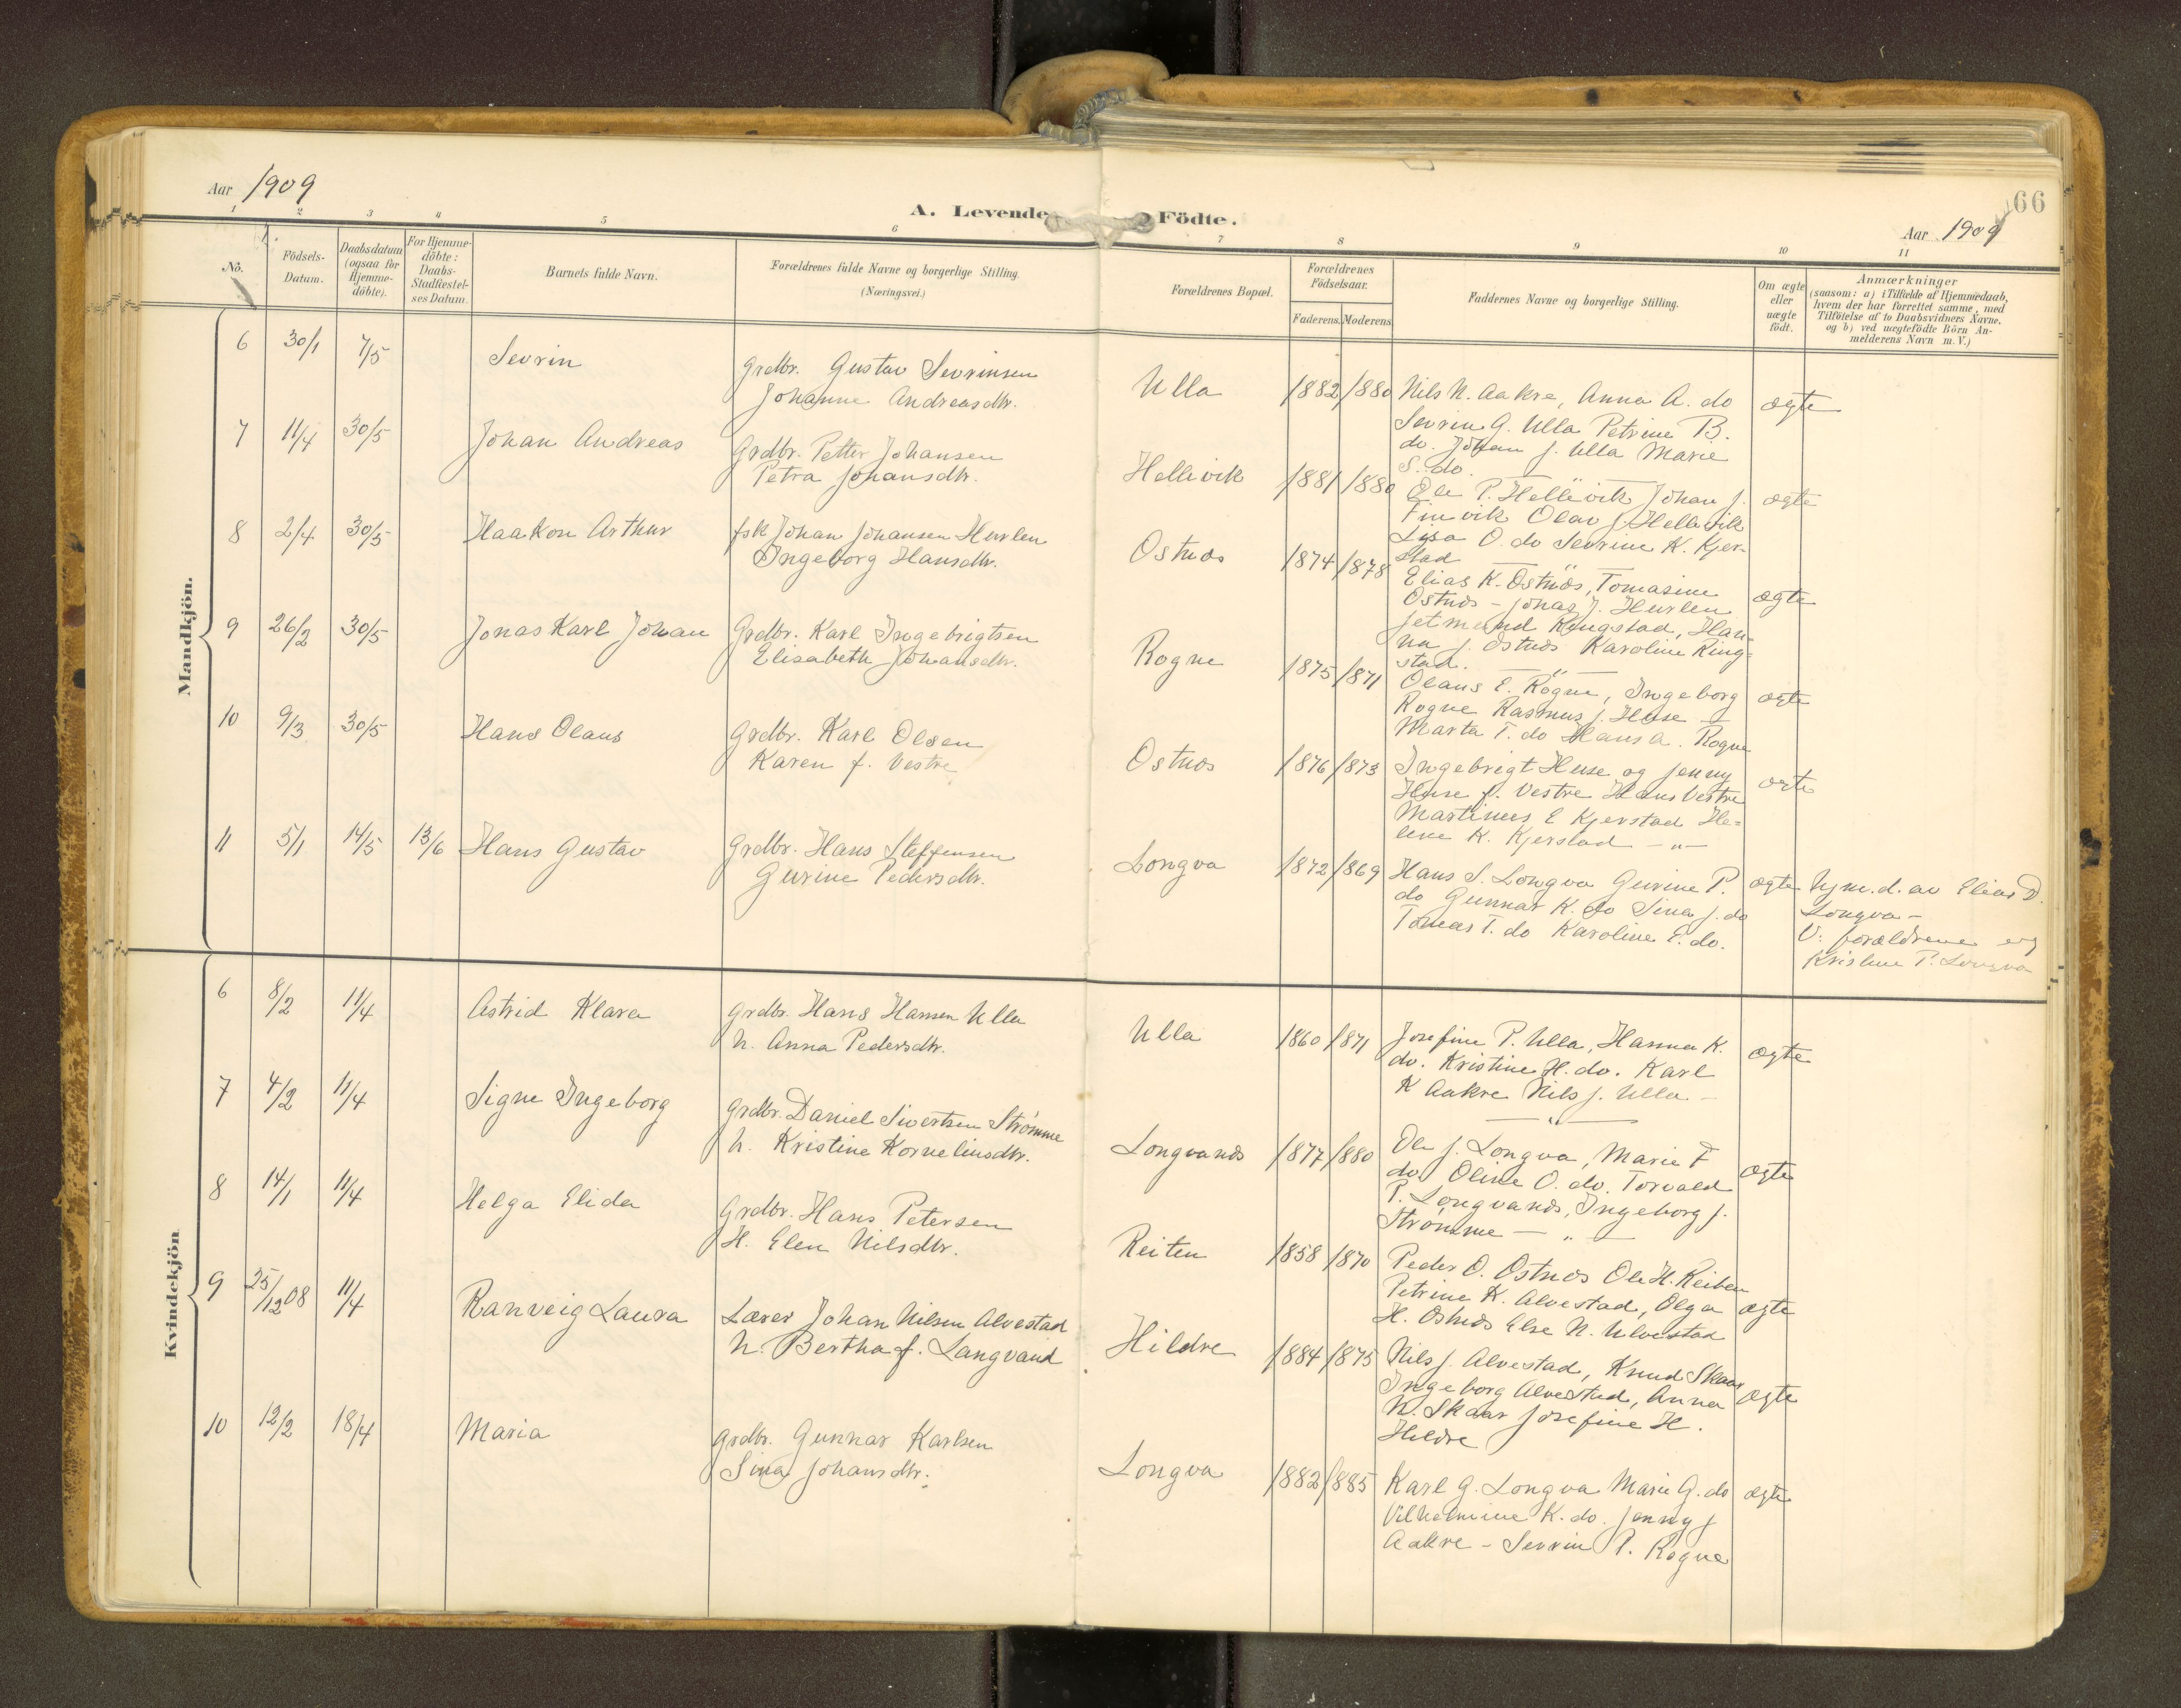 Aar 1909
A. Levende Födte.
66
Aar 1909
1 2 3 4 5 6 7 8 9 10 11
No.
Födsels-Datum.
Daabsdatum (ogsaa for Hjemme-döbte).
For Hjemme-döbte: Daabs-Stadfæstel-ses Datum.
Barnets fulde Navn.
Forældrenes fulde Navne og borgerlige Stilling.
(Næringsvei.)
Forældrenes Bopæl.
Forældrenes Födselsaar.
Faderens. Moderens.
Faddernes Navne og borgerlige Stilling.
Om ægte eller uægte födt.
Anmærkninger
(saasom: a) i Tilfælde af Hjemmedaab,
hvem der har forrettet samme, med
Tilföielse af to Daabsvidners Navne.
og b) ved uægtefödte Börn An-
melderens Navn m. V.)
Mandkjön.
6 30/1 7/5 Sevrin
Grdbr. Gustav Sevrinsen
Johanne Andreasdtr.
Ulla 1882 1880
Nils N. Aakre, Anna A. do
Sevrin G. Ulla Petrine B.
do. Johan J. Ulla Marie
S. do.
ægte
7 11/4 30/5 Johan Andreas
Grdbr. Petter Johansen
Petra Johansdtr.
Hellevik 1881 1880
Ole P. Hellevik Johan J.
Finvik Olav J. Hellevik
Lisa O. do Sevrine K. Kjer-
stad
ægte
8 2/4 30/5 Haakon Arthur
fsk Johan Johansen Hurlen
Ingeborg Hansdtr.
Ostnes 1874 1878
Elias K. Ostnes, Tomasine
Ostnes - Jonas J. Hurlen
Jetmund Ringstad, Han-
na J. Ostnes Karoline Ring-
stad.
ægte
9 26/2 30/5 Jonas Karl Johan
Grdbr. Karl Ingebrigtsen
Elisabeth Johansdtr.
Rogne 1875 1871
Olaus E. Rogne, Ingeborg
Rogne Rasmus J. Huse
Marta T. do Hans A. Rogne
ægte
10 9/3 30/5 Hans Olaus
Grdbr. Karl Olsen
Karen f. Vestre
Ostnes 1876 1873
Ingebrigt Huse og Jenny
Huse f. Vestre Hans Vestre
Martinus E Kjerstad He-
lene K. Kjerstad - " -
ægte
11 5/1 14/5 13/6 Hans Gustav
Grdbr. Hans Steffensen
Gurine Pedersdtr.
Longva 1872 1869
Hans S. Longva Gurine P.
do Gunnar K. do Sina J. do
Tomas T. do Karoline E. do.
ægte
hjm.d. av Elias D.
Longva -
V: forældrene og
Kristine P. Longva
Kvindekjön
6 8/2 11/4 Astrid Klara
Grdbr. Hans Hansen Ulla
h. Anna Pedersdtr.
Ulla 1860 1871
Josefine P. Ulla, Hanna K.
do. Kristine H. do. Karl
K Aakre Nils J. Ulla -
- " -
ægte
7 4/2 11/4 Signe Ingeborg
Grdbr. Daniel Sivertsen Strømme
h. Kristine Korneliusdtr.
Longvanes 1877 1880
Ole J. Longva, Marie F
do Oline O. do. Torvald
P. Longvanes, Ingeborg J.
Strømme - " -
ægte
8 14/1 11/4 Helga Elida
Grdbr. Hans Petersen
H. Elen Nilsdtr.
Reiten 1858 1870
Peder O. Ostnes Ole H. Reiten
Petrine K. Alvestad, Olga
H. Ostnes Else N. Ulvestad
ægte
9 25/12 08 11/4 Ranveig Laura
Lærer Johan Nilsen Alvestad
h. Bertha f. Langvand
Hildre 1884 1875
Nils J. Alvestad, Knud Skaar
Ingeborg Alvestad, Anna
N. Skaar Josefine H.
Hildre
ægte
10 12/2 18/4 Maria
Grdbr. Gunnar Karlsen
Sina Johansdtr.
Longva 1882 1885
Karl G. Longva Marie G. do
Vilhelmine K. do. Jenny J
Aakre - Sevrin P. Rogne
ægte